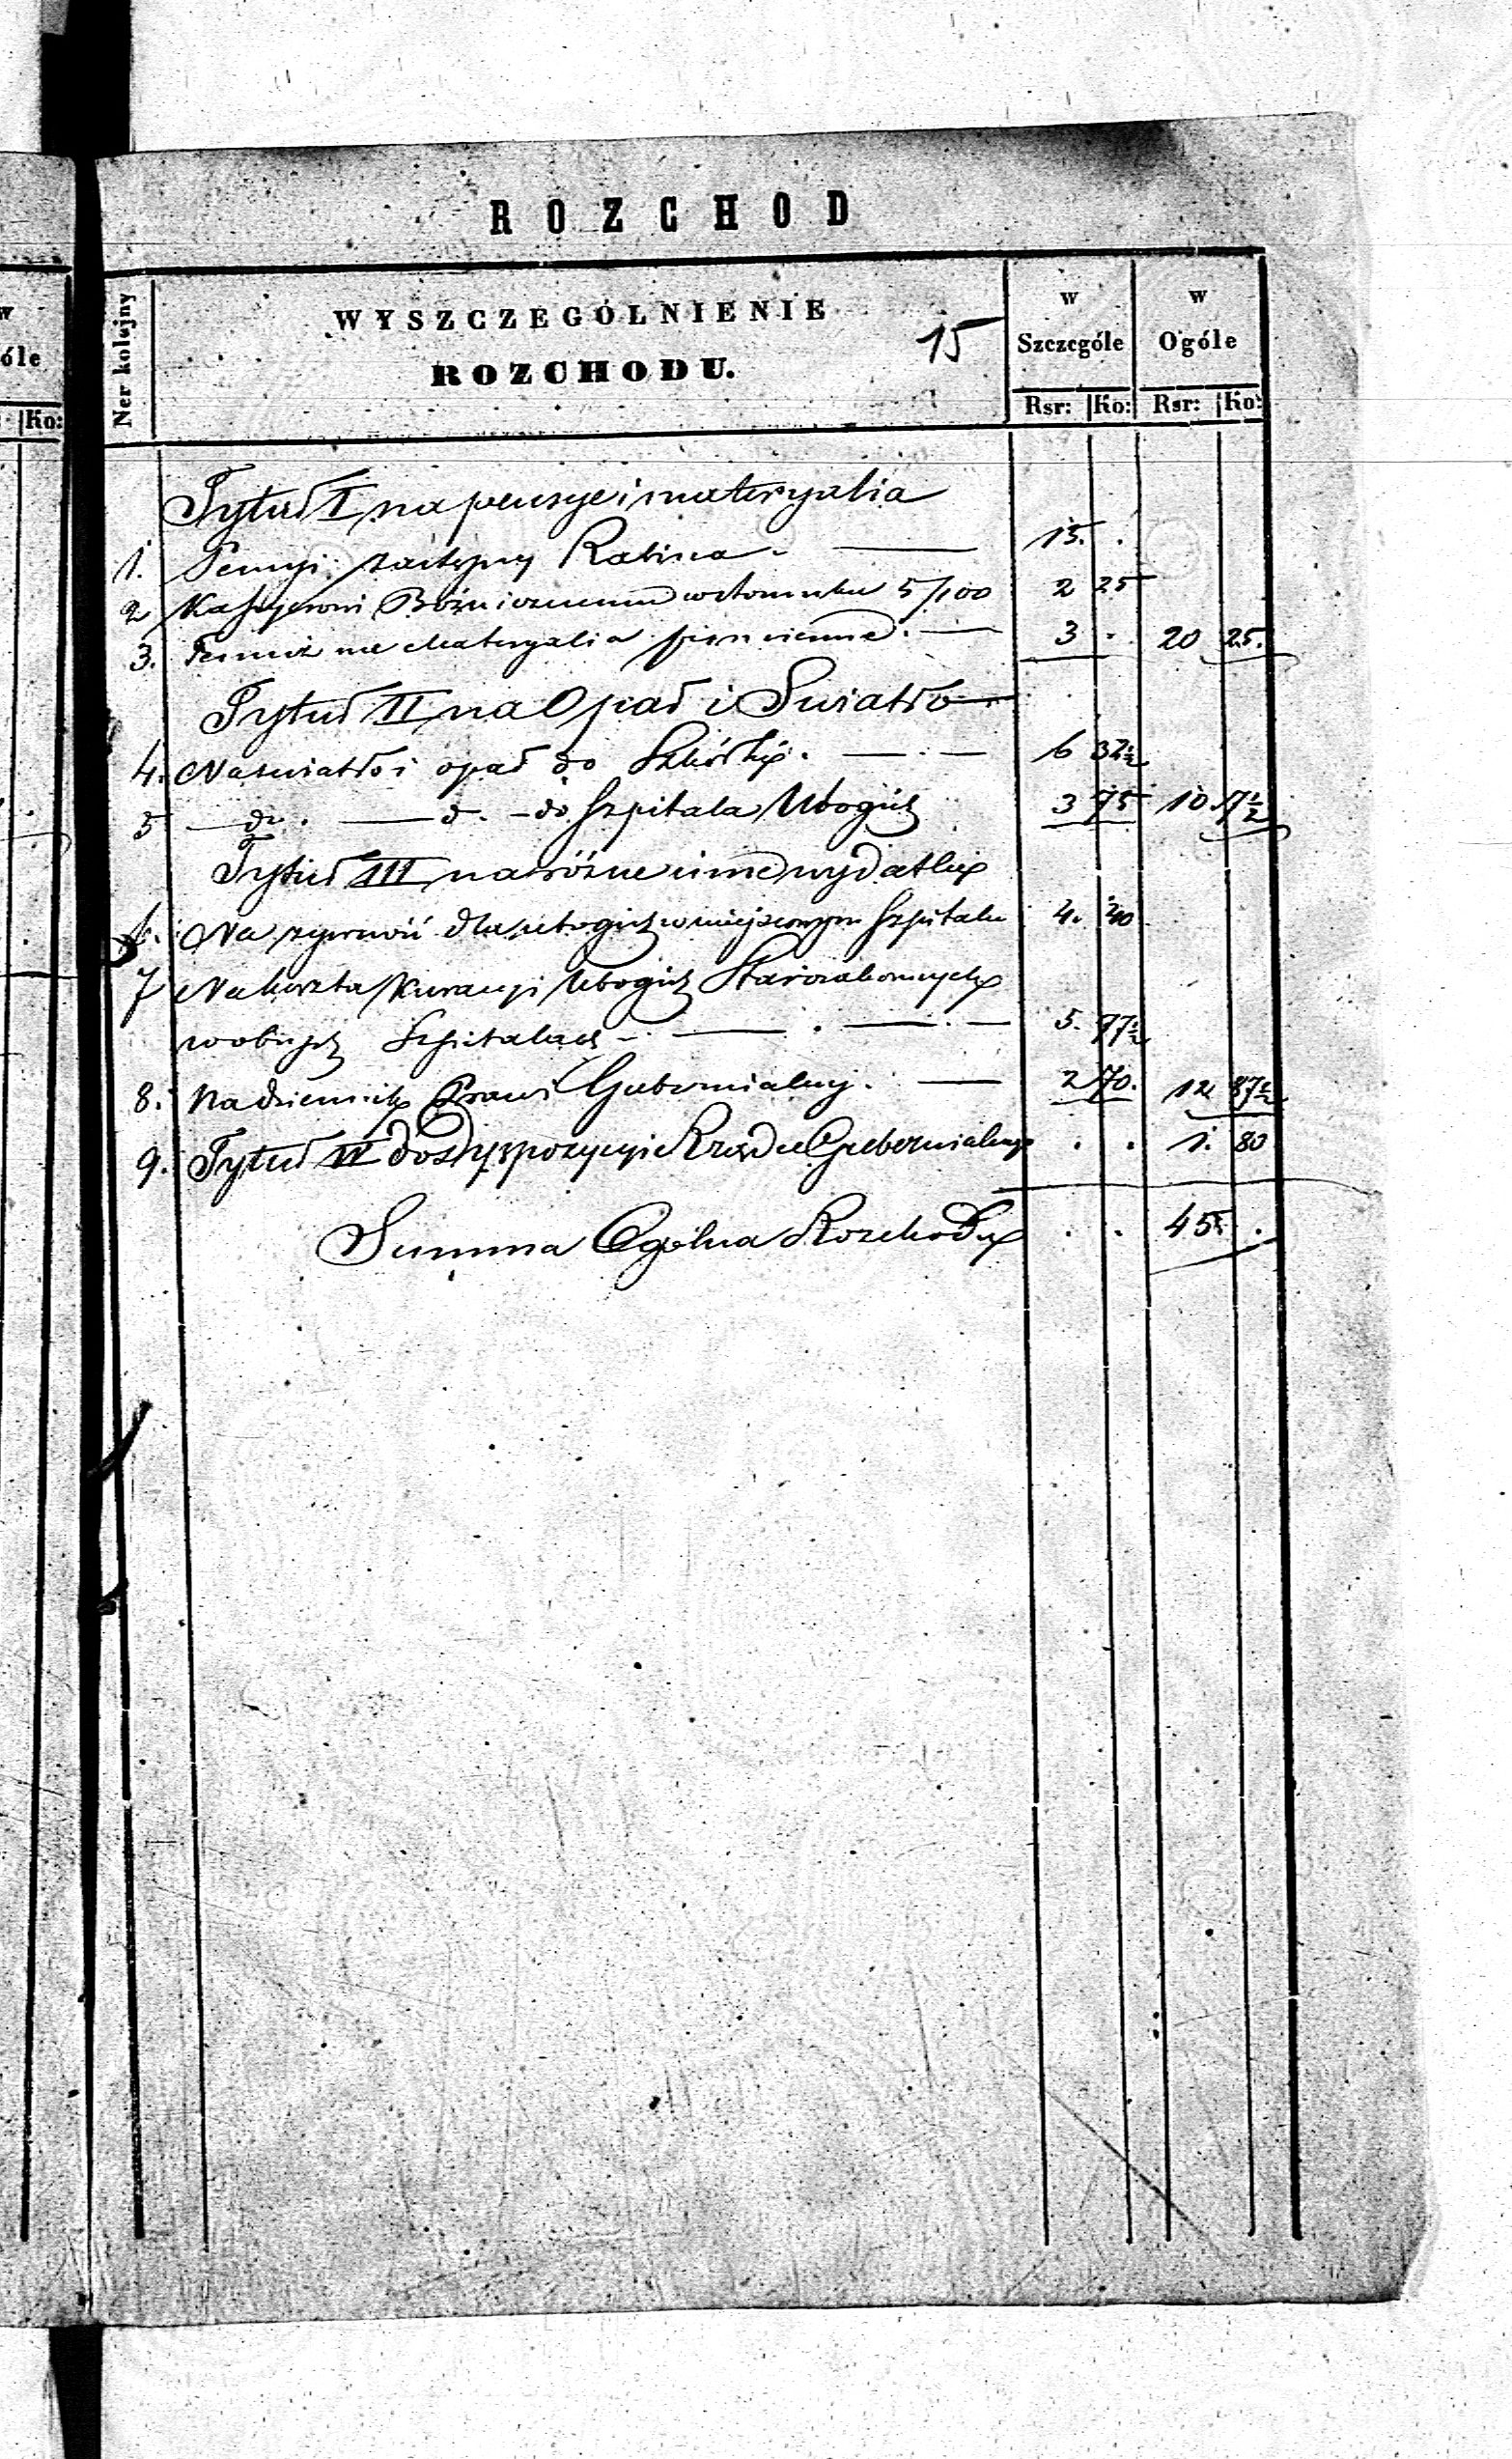 w
óle
Ko:
ROZCHOD
Ner kolejny
WYSZCZEGÓLNIENIE
ROZCHODU.
15
w Szczególe
w Ogóle
Rsr: Ko: Rsr: Ko:
Tytuł I na pensye i materyalia
1. Pensyi zastępcy Rabina 15. .
2 Kassyerowi Bóżniczemu w stosunku 5/100 2 25
3. Temuż na Materyalia piśmienne 3 . 20 25.
Tytuł II na Opał i Swiatło
4. Na swiatło i opał do Szkółki 6 32½
5 do. d. do Szpitala Ubogich 3 75 10. 7½
Tytuł III na różne inne wydatki
6. Na żywność dla ubogich w miejscowym Szpitalu 4. 40
7 Na koszta Kuracyi Ubogich Starozakonnych
w obcych Szpitalach 5. 77½
8. Na dziennik Praw i Gubernialny. 2 70. 12 87½
9. Tytuł IV do dyspozycyi Rządu Gubernialnego . . 1. 80
Summa Ogólna Rozchodu . . 45 .